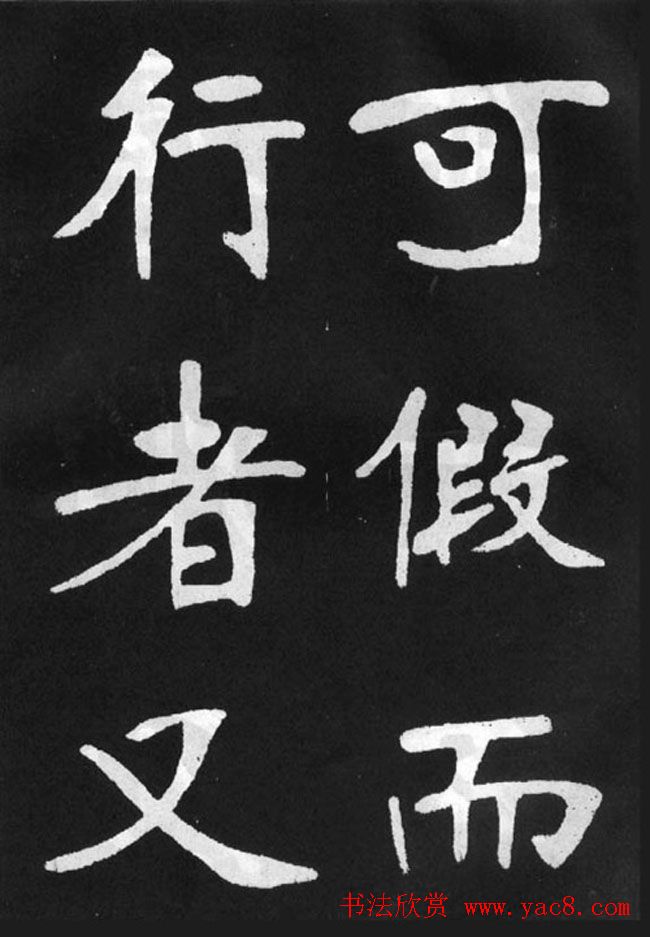 可假而
行者又
书法欣赏 www.yac8.com